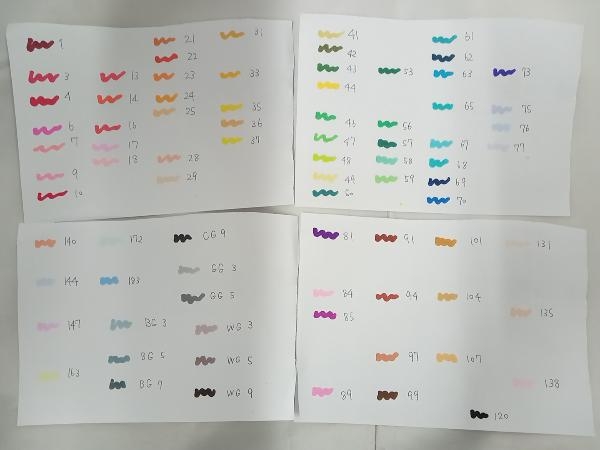 1
3
4
6
7
9
10
13
14
16
17
18
21
22
23
24
25
28
29
31
33
35
36
37
41
42
43
44
46
47
48
49
50
53
56
57
58
59
61
62
63
65
67
68
69
70
73
75
76
77
140
144
147
163
172
183
BG 3
BG 5
BG 7
CG 9
GG 3
GG 5
WG 3
WG 5
WG 9
81
84
85
89
91
94
97
99
101
104
107
120
131
135
138